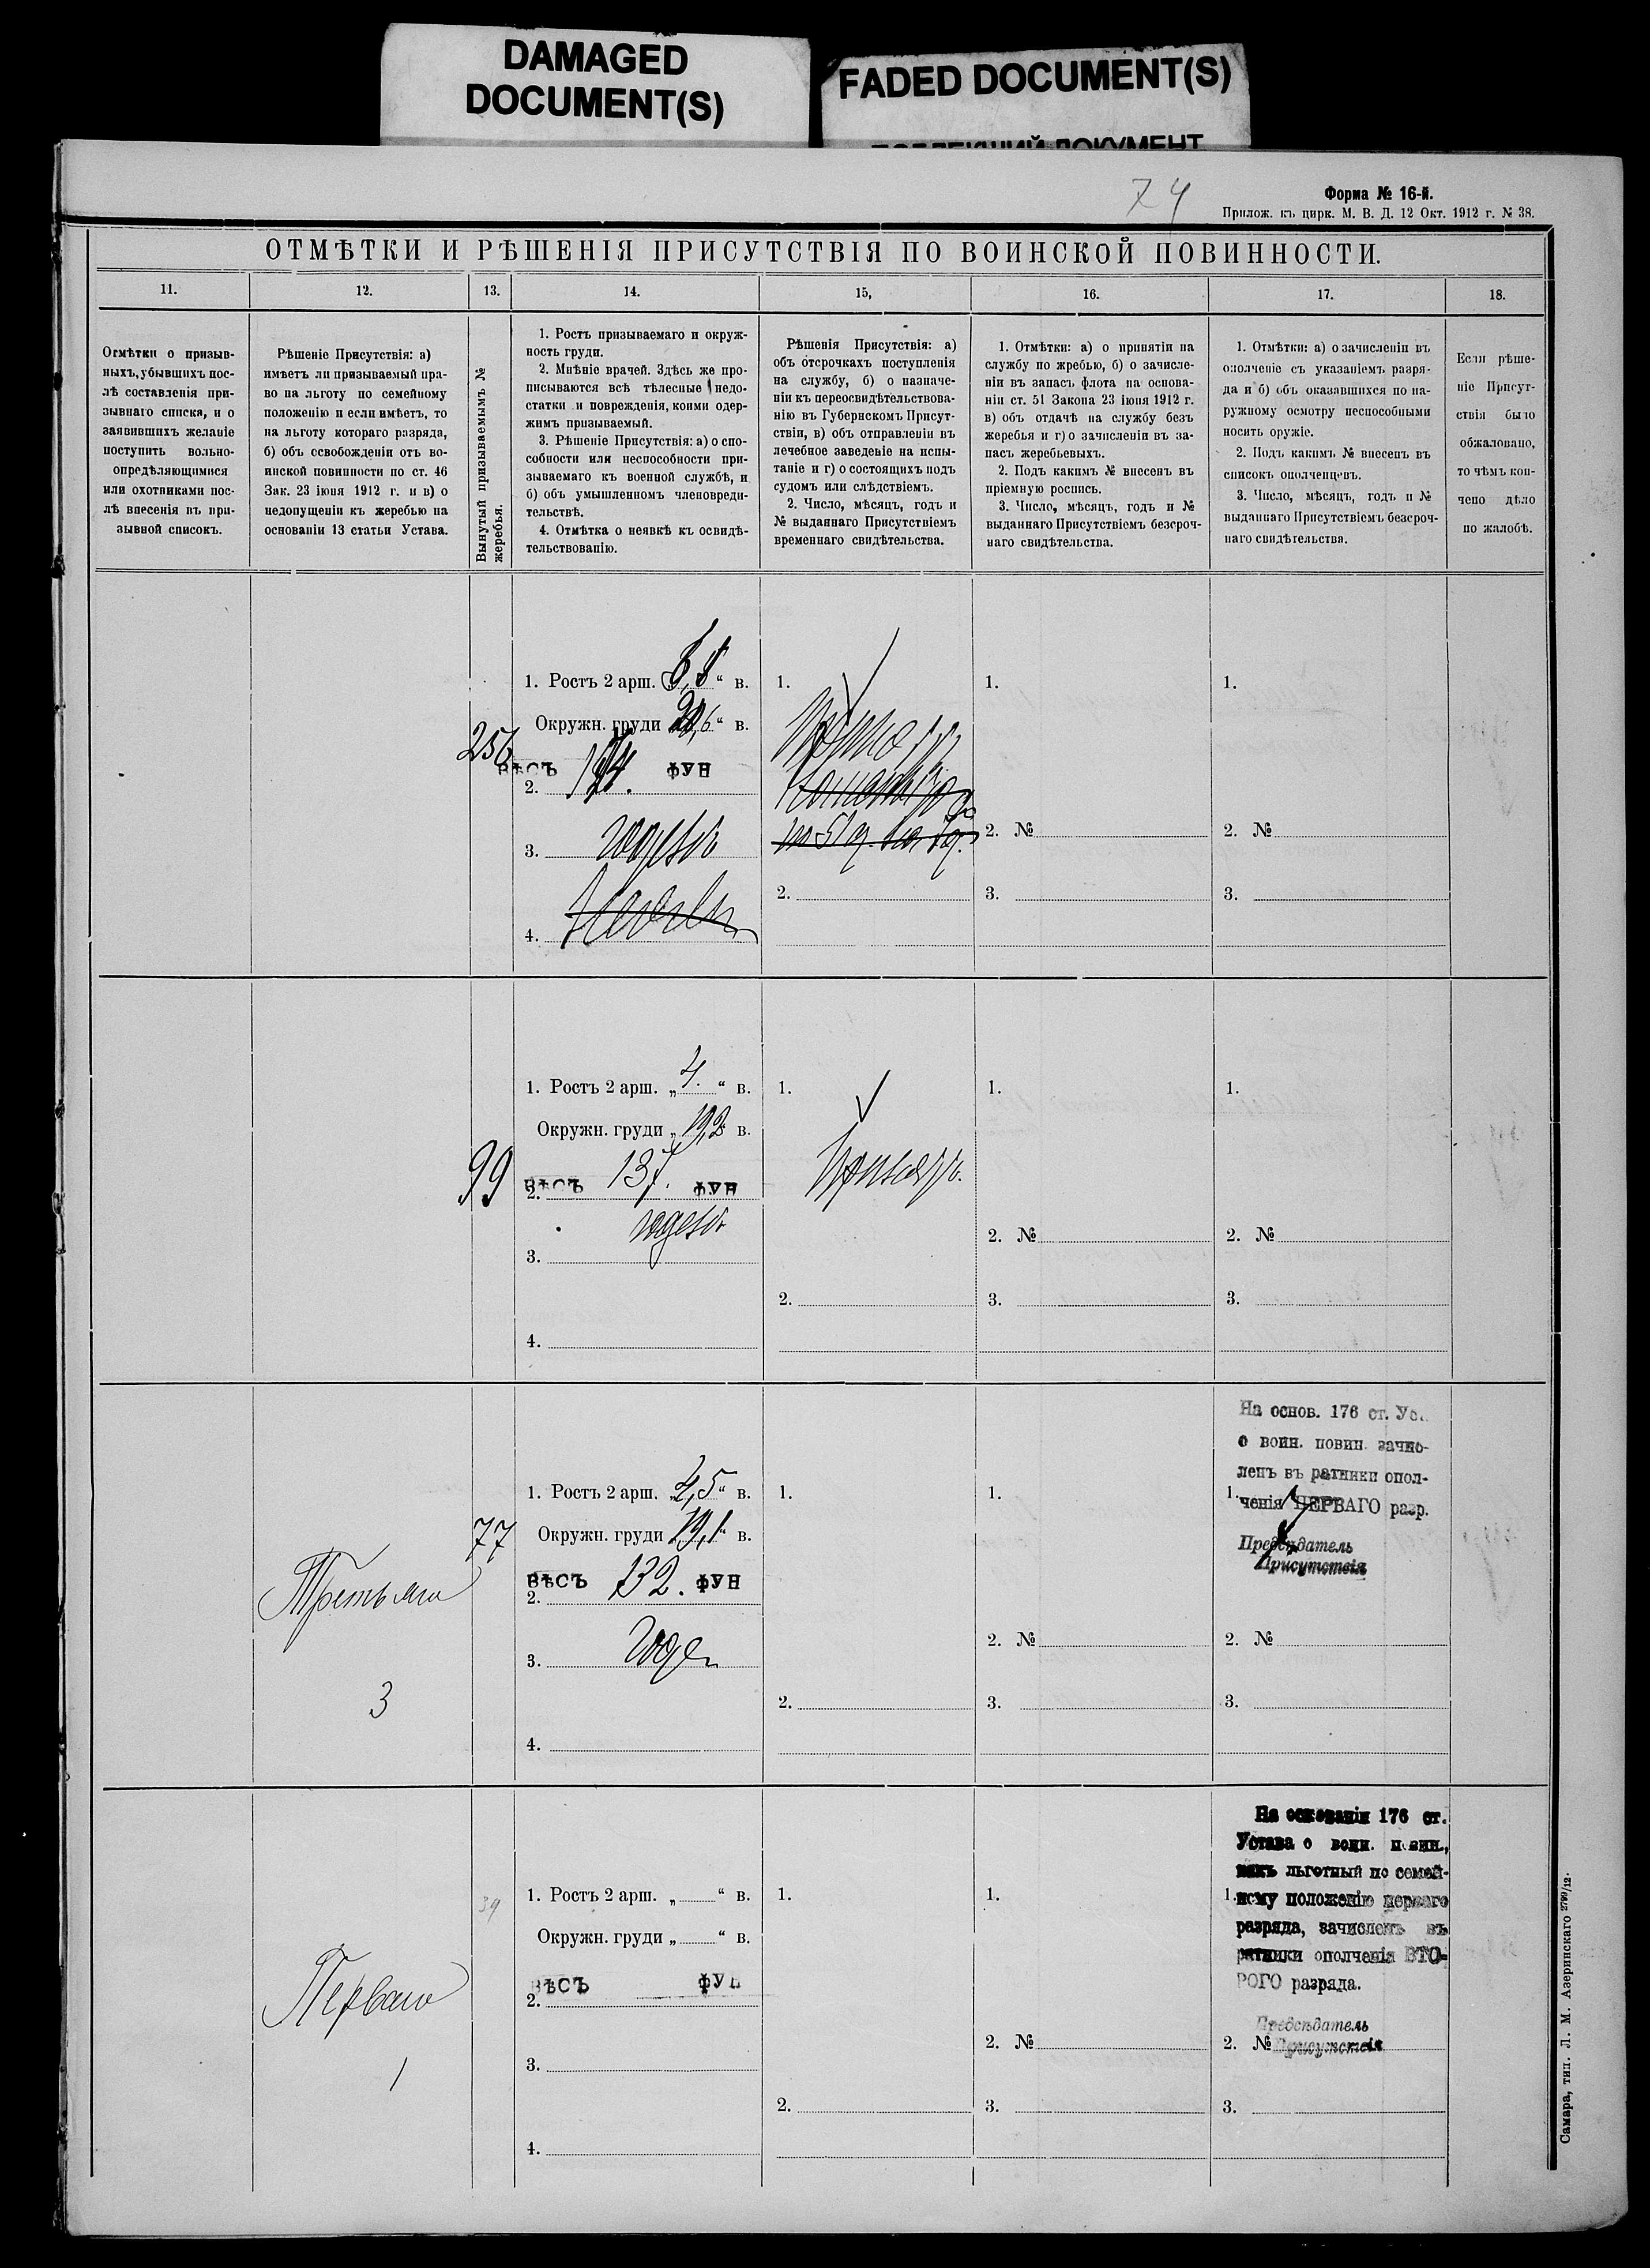 DAMAGED
DOCUMENT(S)
FADED DOCUMENT(S)
74
Форма № 16-й.
Прилож. къ цирк. М. В. Д. 12 Окт. 1912 г. № 38.
ОТМѢТКИ И РѢШЕНІЯ ПРИСУТСТВІЯ ПО ВОИНСКОЙ ПОВИННОСТИ.
11.
12.
13.
14.
15,
16.
17.
18.
Отмѣтки о призыв-
ныхъ, убывшихъ пос-
лѣ составленія при-
зывнаго списка, и о
заявившихъ желаніе
поступить вольно-
опредѣляющимися
или охотниками пос-
лѣ внесенія въ при-
зывной списокъ.
Рѣшеніе Присутствія: а)
имѣетъ ли призываемый пра-
во на льготу по семейному
положенію и если имѣетъ, то
на льготу котораго разряда,
б) объ освобожденіи отъ во-
инской повинности по ст. 46
Зак. 23 іюня 1912 г. и в) о
недопущеніи къ жеребью на
основаніи 13 статьи Устава.
Вынутый призываемымъ №
жеребья.
1. Ростъ призываемаго и окруж-
ность груди.
2. Мнѣніе врачей. Здѣсь же про-
писываются всѣ тѣлесные недо-
статки и поврежденія, коими одер-
жимъ призываемый.
3. Рѣшеніе Присутствія: а) о спо-
собности или неспособности при-
зываемаго къ военной службѣ, и
б) объ умышленномъ членовреди-
тельствѣ.
4. Отмѣтка о неявкѣ къ освидѣ-
тельствованію.
Рѣшенія Присутствія: а)
объ отсрочкахъ поступленія
на службу, б) о назначе-
ніи къ переосвидѣтельствова-
нію въ Губернскомъ Присут-
ствіи, в) объ отправленіи въ
лечебное заведеніе на испы-
таніе и г) о состоящихъ подъ
судомъ или слѣдствіемъ.
2. Число, мѣсяцъ, годъ и
№ выданнаго Присутствіемъ
временнаго свидѣтельства.
1. Отмѣтки: а) о принятіи на
службу по жребью, б) о зачисле-
ніи въ запасъ флота на основа-
ніи ст. 51 Закона 23 іюня 1912 г.
в) объ отдачѣ на службу безъ
жеребья и г) о зачисленіи въ за-
пасъ жеребьевыхъ.
2. Подъ какимъ № внесенъ въ
пріемную роспись.
3. Число, мѣсяцъ, годъ и №
выданнаго Присутствіемъ безсроч-
наго свидѣтельства.
1. Отмѣтки: а) о зачисленіи въ
ополченіе съ указаніемъ разря-
да и б) объ оказавшихся по на-
ружному осмотру неспособными
носить оружіе.
2. Подъ какимъ № внесенъ въ
списокъ ополченцевъ.
3. Число, мѣсяцъ, годъ и №
выданнаго Присутствіемъ безсроч-
наго свидѣтельства.
Если рѣше-
ніе Присут-
ствія было
обжаловано,
то чѣмъ кон-
чено дѣло
по жалобѣ.
256
1. Ростъ 2 арш. „ “ в.
Окружн. груди „ “ в.
ВѢСЪ ФУН
2.
3. годенъ
4.
1.
2.
1.
2. №
3.
1.
2. №
3.
99
1. Ростъ 2 арш. „4.“ в.
Окружн. груди „19,2“ в.
ВѢСЪ 137. ФУН
2.
3. годенъ
4.
1.
Принятъ.
2.
1.
2. №
3.
1.
2. №
3.
Третьяго
3
77
1. Ростъ 2 арш. „4,5“ в.
Окружн. груди „19,1“ в.
ВѢСЪ 132. ФУН
2.
3. Годен
4.
1.
2.
1.
2. №
3.
На основ. 176 ст. Уст.
о воин. повин. зачис-
ленъ въ ратники опол-
1. ченія ПЕРВАГО разр.
Предсѣдатель
Присутствія
2. №
3.
Перваго
1
39
1. Ростъ 2 арш. „ “ в.
Окружн. груди „ “ в.
ВѢСЪ ФУН
2.
3.
4.
1.
2.
1.
2. №
3.
На основаніи 176 ст.
Устава о воин. повин.,
какъ льготный по семей-
1. ному положенію перваго
разряда, зачисленъ въ
ратники ополченія ВТО-
РОГО разряда.
Предсѣдатель
2. № Присутствія
3.
Самара, тип. Л. М. Азеринскаго 2799/12.